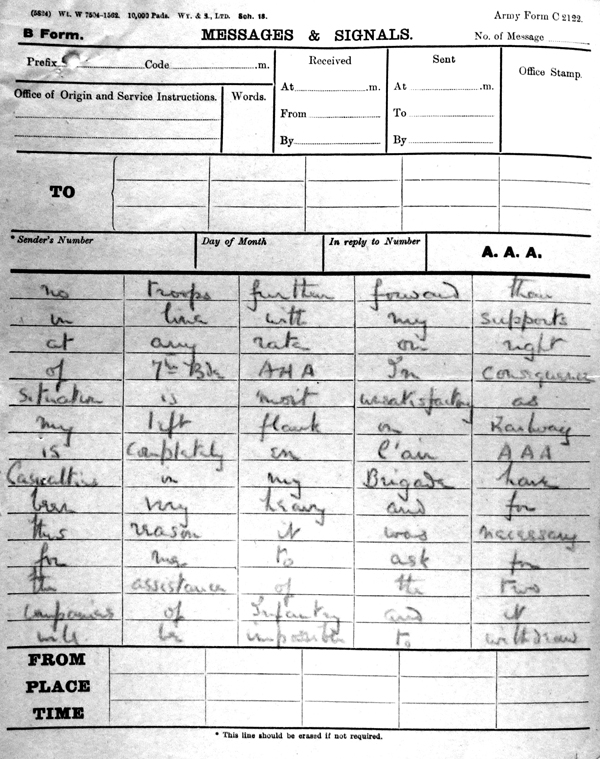 (5624) Wt. W 7504-1562. 10,000 Pads. Wy. & S., Ltd. Sch. 18.
Army Form C 2122.
B Form. MESSAGES & SIGNALS. No. of Message
Prefix Code m. Received Sent Office Stamp.
At m. At m.
Office of Origin and Service Instructions. Words.
From To
By By
TO
* Sender's Number Day of Month In reply to Number A. A. A.
no troops further forward than
in line with my supports
at any rate on right
of 7th Bde AAA In consequence
situation is most unsatisfactory as
my left flank on Railway
is completely en l'air AAA
Casualties in my Brigade have
been very heavy and for
this reason it was necessary
for me to ask for
the assistance of the two
companies of Infantry and it
will be impossible to withdraw
FROM
PLACE
TIME
* This line should be erased if not required.